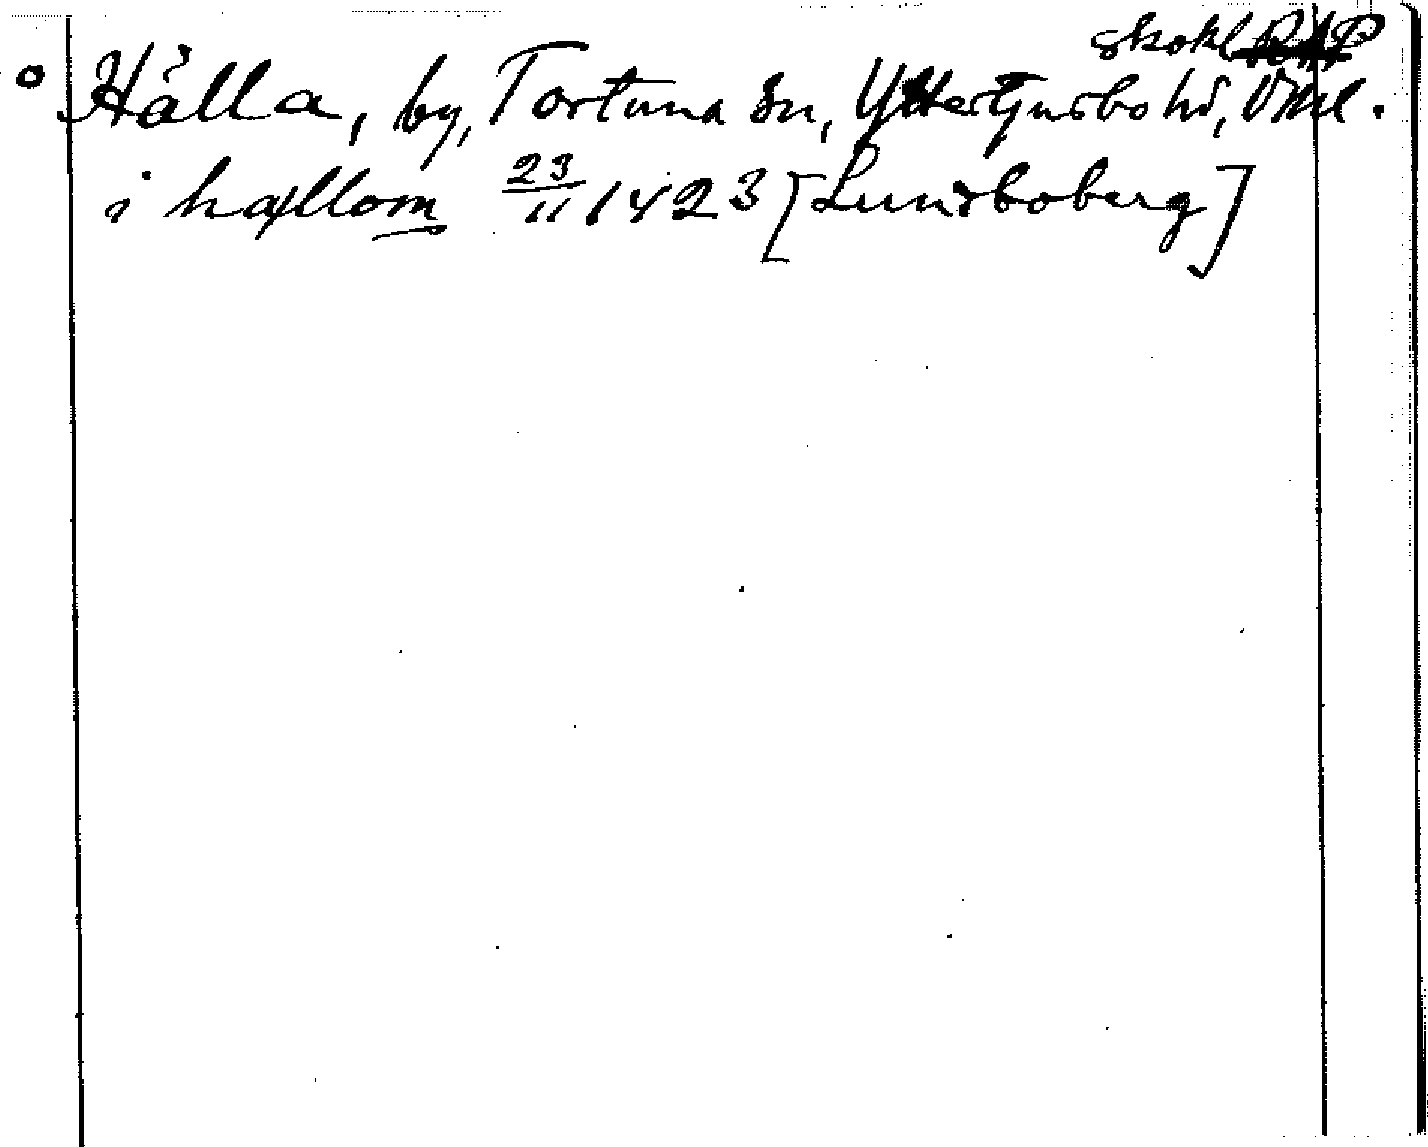 skokl
Hålla, by, Tortuna sn, Yttertjurbo hd, Vml.
i hallom 23/11 1423 [Lundboberg]